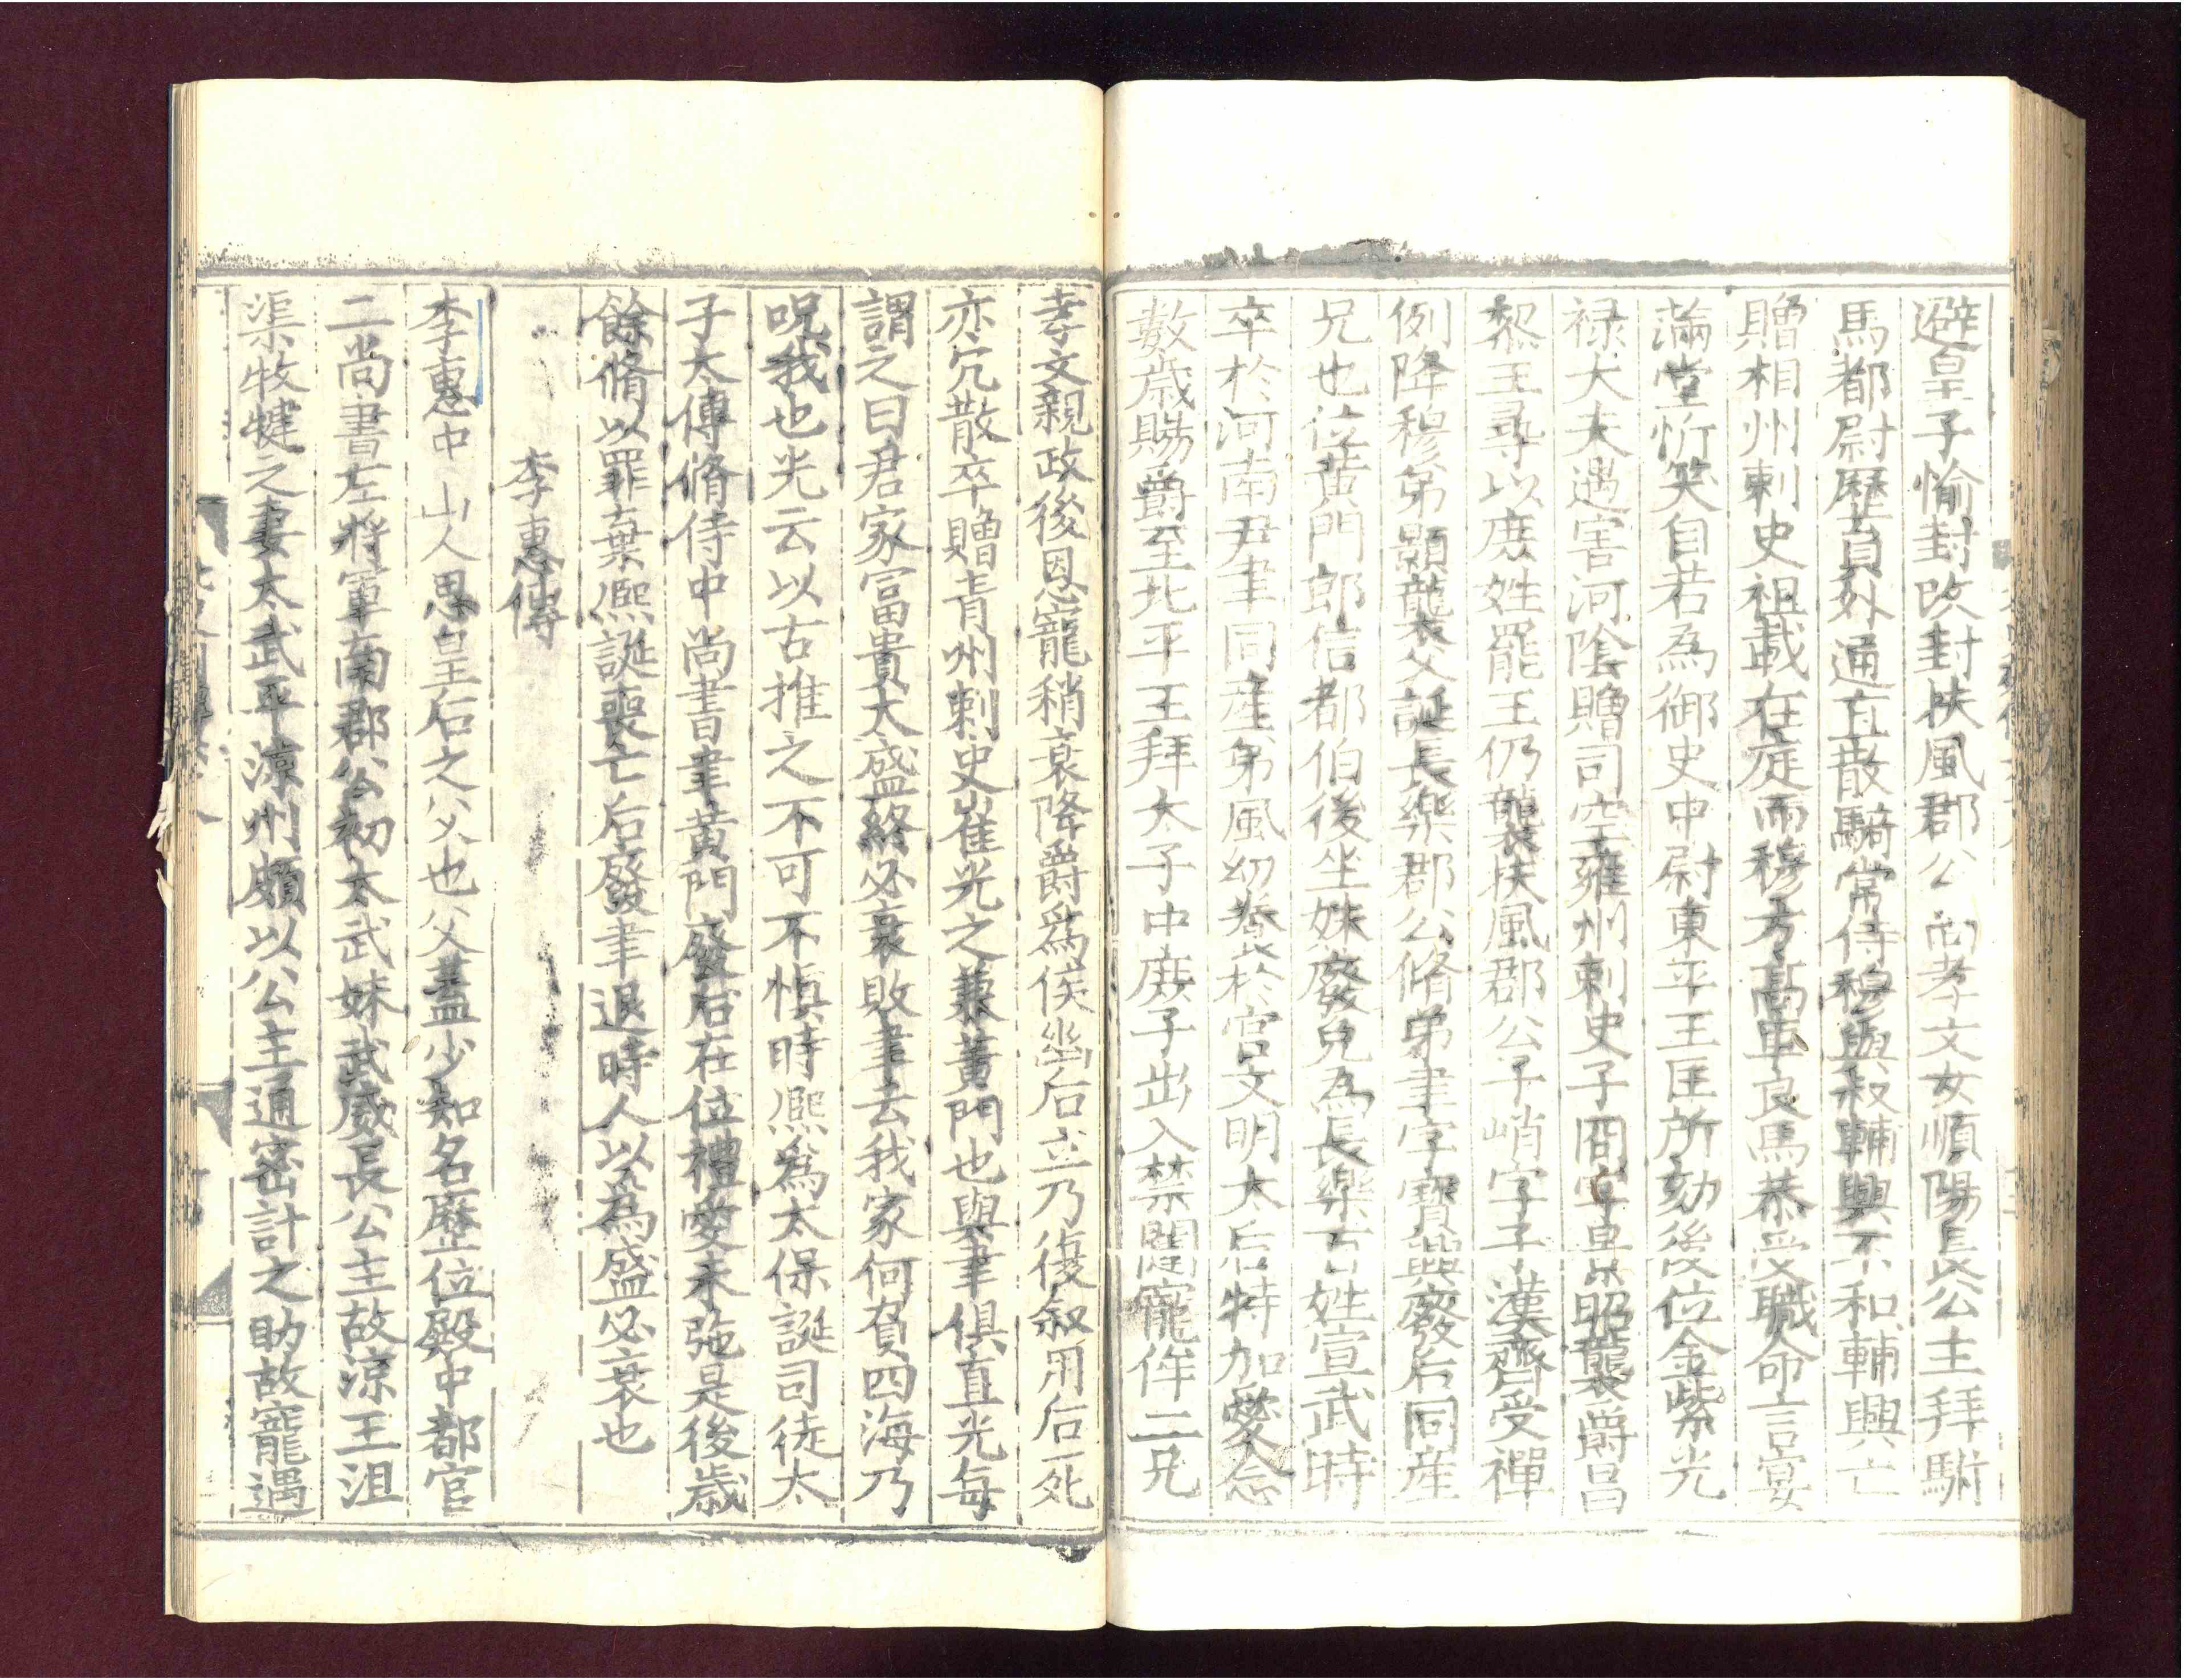 避皇子愉封改封扶風郡公尚孝文女順陽長公主拜駙
馬都尉歷員外通直散騎常侍穆與叔輔興不和輔興亡
贈相州刺史祖載在庭而穆方高車良馬恭受職命言宴
滿堂忻笑自若為御史中尉東平王匡所劾後位金紫光
禄大夫遇害河陰贈司空雍州刺史子冏字景昭襲爵昌
黎王尋以庶姓罷王仍襲扶風郡公子峭字子漢齊受禪
例降穆弟顥襲父誕長樂郡公脩弟聿字寶興廢后同産
兄也位黃門郎信都伯後坐妹廢免為長樂百姓宣武時
卒於河南尹聿同産弟風幼養於宮文明太后特加愛念
數歲賜爵至北平王拜太子中庶子出入禁闥寵侔二兄
孝文親政後恩寵稍衰降爵為侯幽后立乃復叙用后死
亦冗散卒贈青州刺史崔光之兼黃門也與聿俱直光每
謂之曰君家富貴太盛終必衰敗聿云我家何負四海乃
呪我也光云以古推之不可不慎時熈為太保誕司徒太
子太傅脩侍中尚書聿黃門廢后在位禮愛未弛是後歲
餘脩以罪棄熈誕喪亡后廢聿退時人以為盛必衰也
李惠傳
李惠中山人思皇后之父也父蓋少知名歷位殿中都官
二尚書左將軍南郡公初太武妹武威長公主故涼王沮
渠牧犍之妻太武平涼州頗以公主通密計之助故寵遇